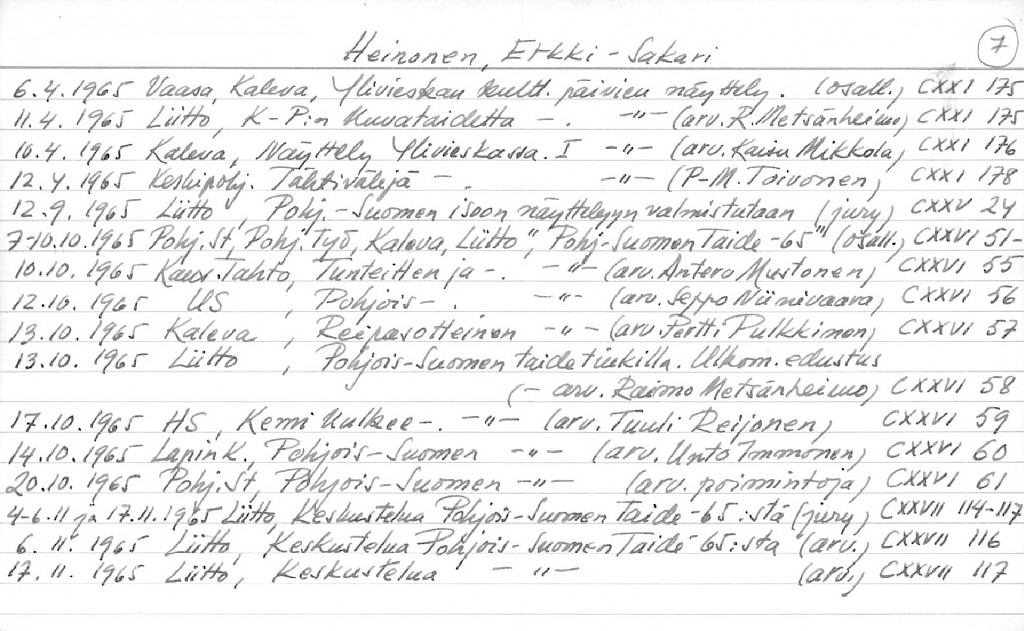 7
Heinonen, Erkki-Sakari
6.4.1965 Vaasa, Kaleva, Ylivieskan kultt. päivien näyttely. (osall.) CXXI 175
11.4.1965 Liitto, K-P:n Kuvataidetta -. -"- (arv. R. Metsänheimo) CXXI 175
10.4.1965 Kaleva, Näyttely Ylivieskassa. I -"- (arv. Kaisu Mikkola) CXXI 176
12.4.1965 Keskipohj. Tähtivälijä -. -"- (P-M. Toivonen) CXXI 178
12.9.1965 Liitto, Pohj.-Suomen isoon näyttelyyn valmistutaan (jury) CXXV 24
7-10.10.1965 Pohj. St, Pohj. Työ, Kaleva, Liitto, "Pohj-Suomen Taide -65" (osall.) CXXVI 51-
10.10.1965 Kans. Tahto, Tunteitten ja -. -"- (arv. Antero Mustonen) CXXVI 55
12.10.1965 US, Pohjois-. -"- (arv. Seppo Niinivaara) CXXVI 56
13.10.1965 Kaleva, Reipasotteinen -"- (arv. Pertti Pulkkinen) CXXVI 57
13.10.1965 Liitto, Pohjois-Suomen taide tiukilla. Ulkom. edustus
(- arv. Raimo Metsänheimo) CXXVI 58
17.10.1965 HS, Kemi kulkee -. -"- (arv. Tuuli Reijonen) CXXVI 59
14.10.1965 Lapin K., Pohjois-Suomen -"- (arv. Unto Immonen) CXXVI 60
20.10.1965 Pohj. St, Pohjois-Suomen -"- (arv. poimintoja) CXXVI 61
4-6.11 ja 17.11.1965 Liitto, Keskustelua Pohjois-Suomen Taide -65:stä (jury) CXXVII 114-117
6.11.1965 Liitto, Keskustelua Pohjois-Suomen Taide 65:stä (arv.) CXXVII 116
17.11.1965 Liitto, Keskustelua -"- (arv.) CXXVII 117